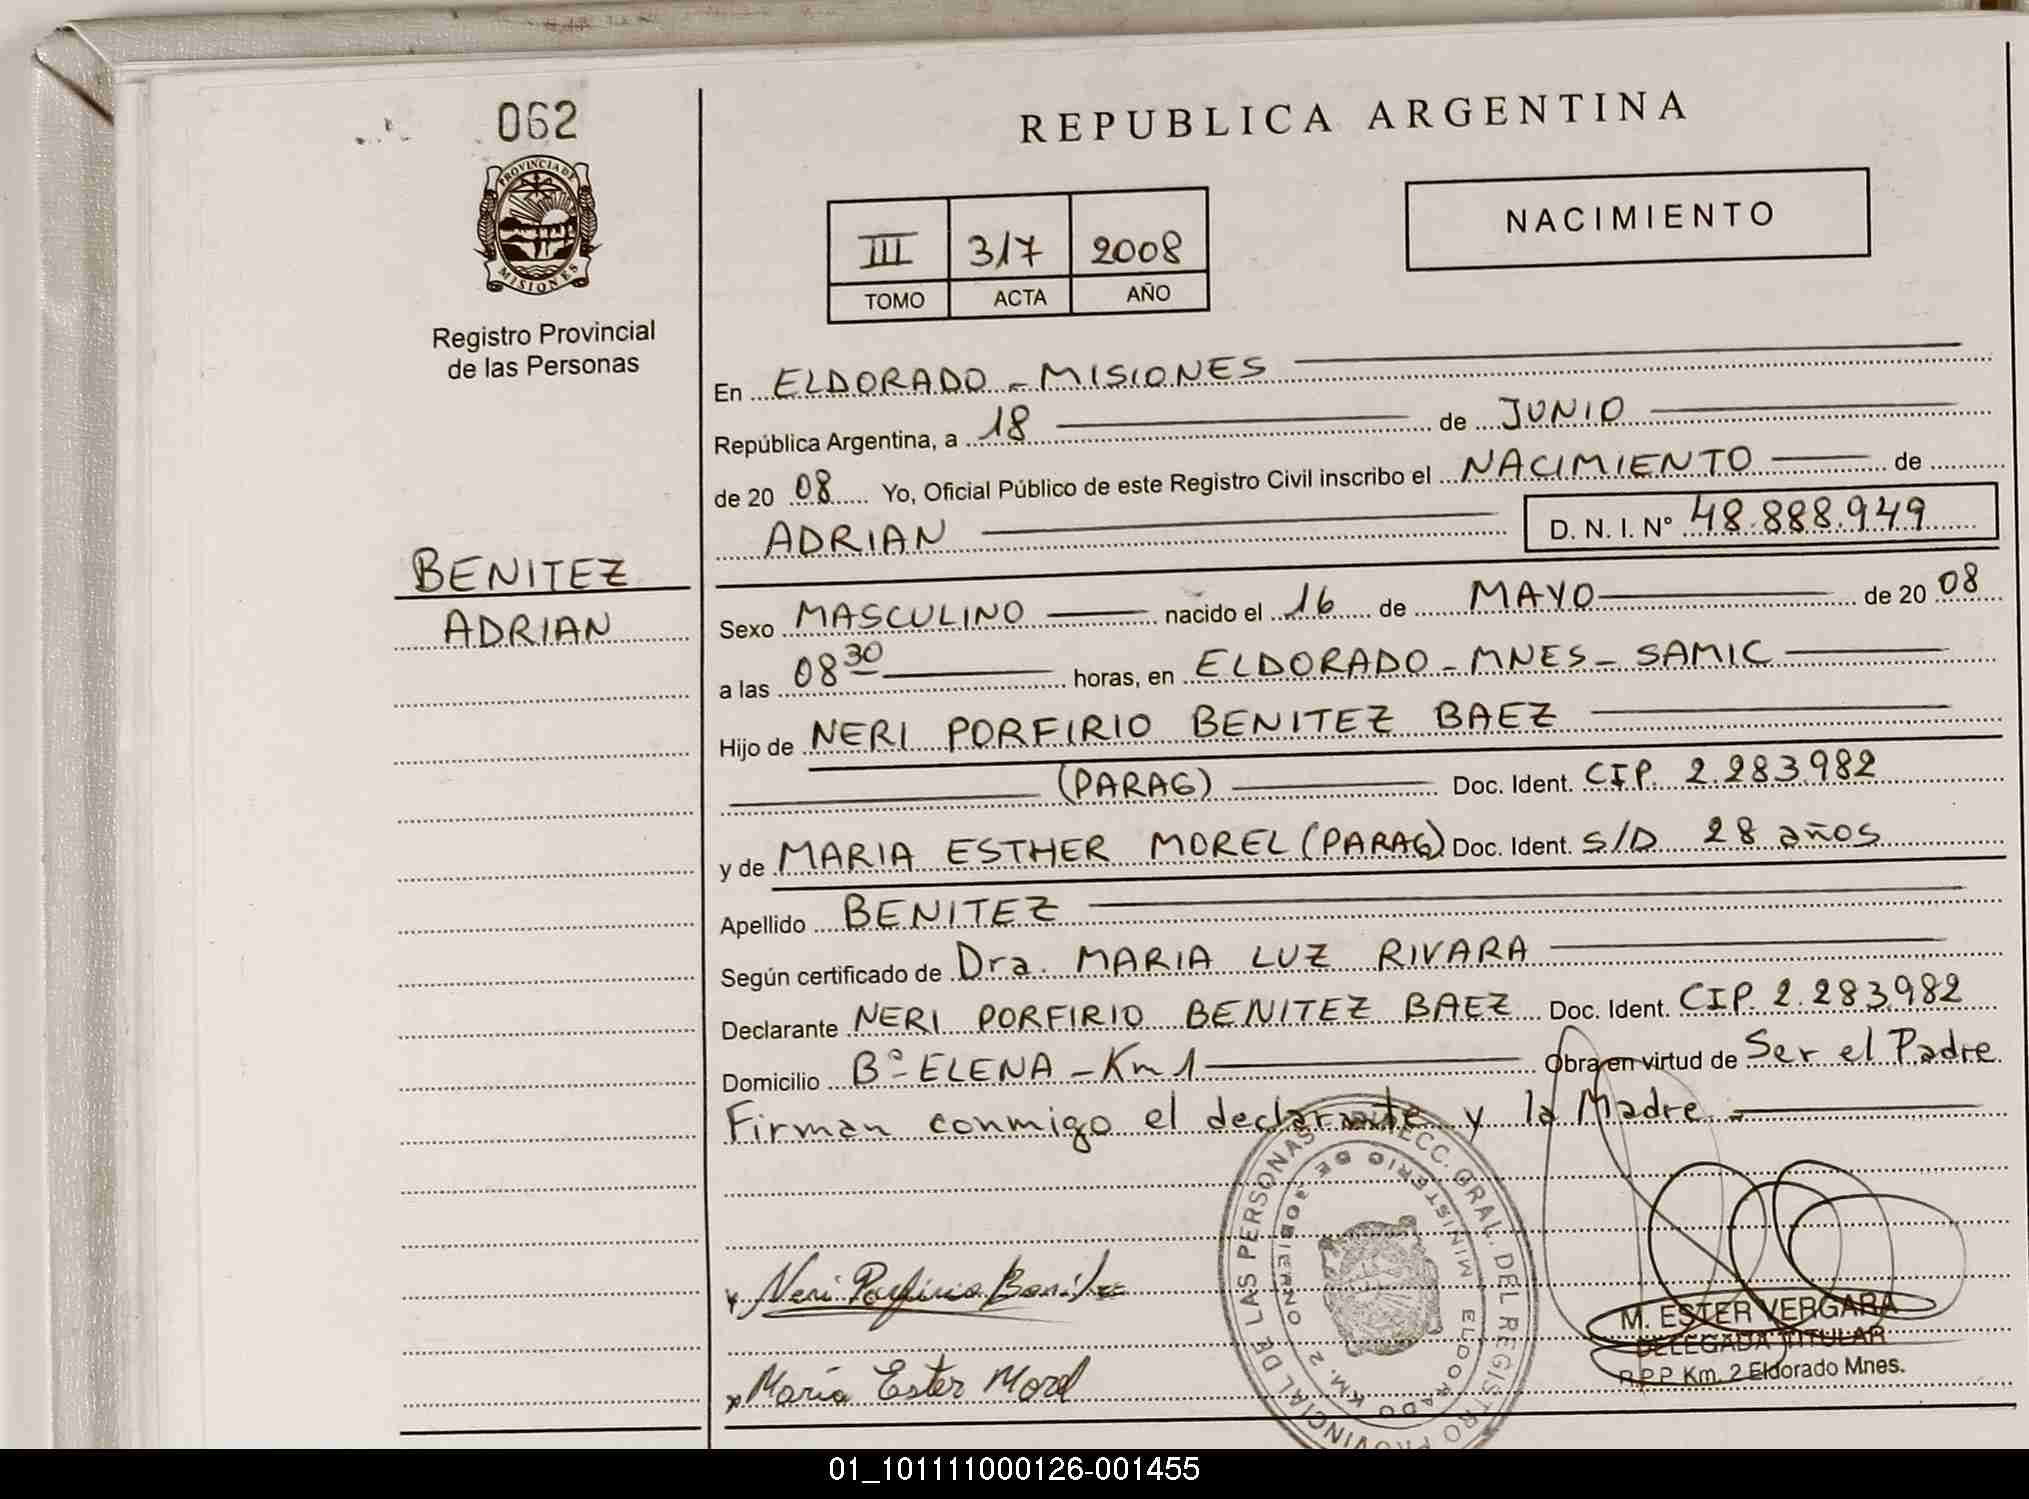 062
PROVINCIA DE
MISIONES
Registro Provincial
de las Personas
BENITEZ
ADRIAN
REPUBLICA ARGENTINA
III 317 2008
TOMO ACTA AÑO
NACIMIENTO
En ELDORADO - MISIONES
República Argentina, a 18 de JUNIO
de 20 08 Yo, Oficial Público de este Registro Civil inscribo el NACIMIENTO de
ADRIAN D. N. I. Nº 48.888.949
Sexo MASCULINO nacido el 16 de MAYO de 20 08
a las 08 30 horas, en ELDORADO - MNES - SAMIC
Hijo de NERI PORFIRIO BENITEZ BAEZ
(PARAG) Doc. Ident. CIP. 2.283.982
y de MARIA ESTHER MOREL (PARAG) Doc. Ident. S/D 28 años
Apellido BENITEZ
Según certificado de Dra. MARIA LUZ RIVARA
Declarante NERI PORFIRIO BENITEZ BAEZ Doc. Ident. CIP. 2.283.982
Domicilio Bº ELENA - Km 1 Obra en virtud de Ser el Padre
Firman conmigo el declarante y la Madre.
Neri Porfirio Benitez
Maria Ester Morel
DIRECC. GRAL. DEL REGISTRO PROVINCIAL DE LAS PERSONAS
MINISTERIO DE GOBIERNO
ELDORADO KM. 2
M. ESTER VERGARA
DELEGADA TITULAR
R.P.P. Km. 2 Eldorado Mnes.
01_101111000126-001455